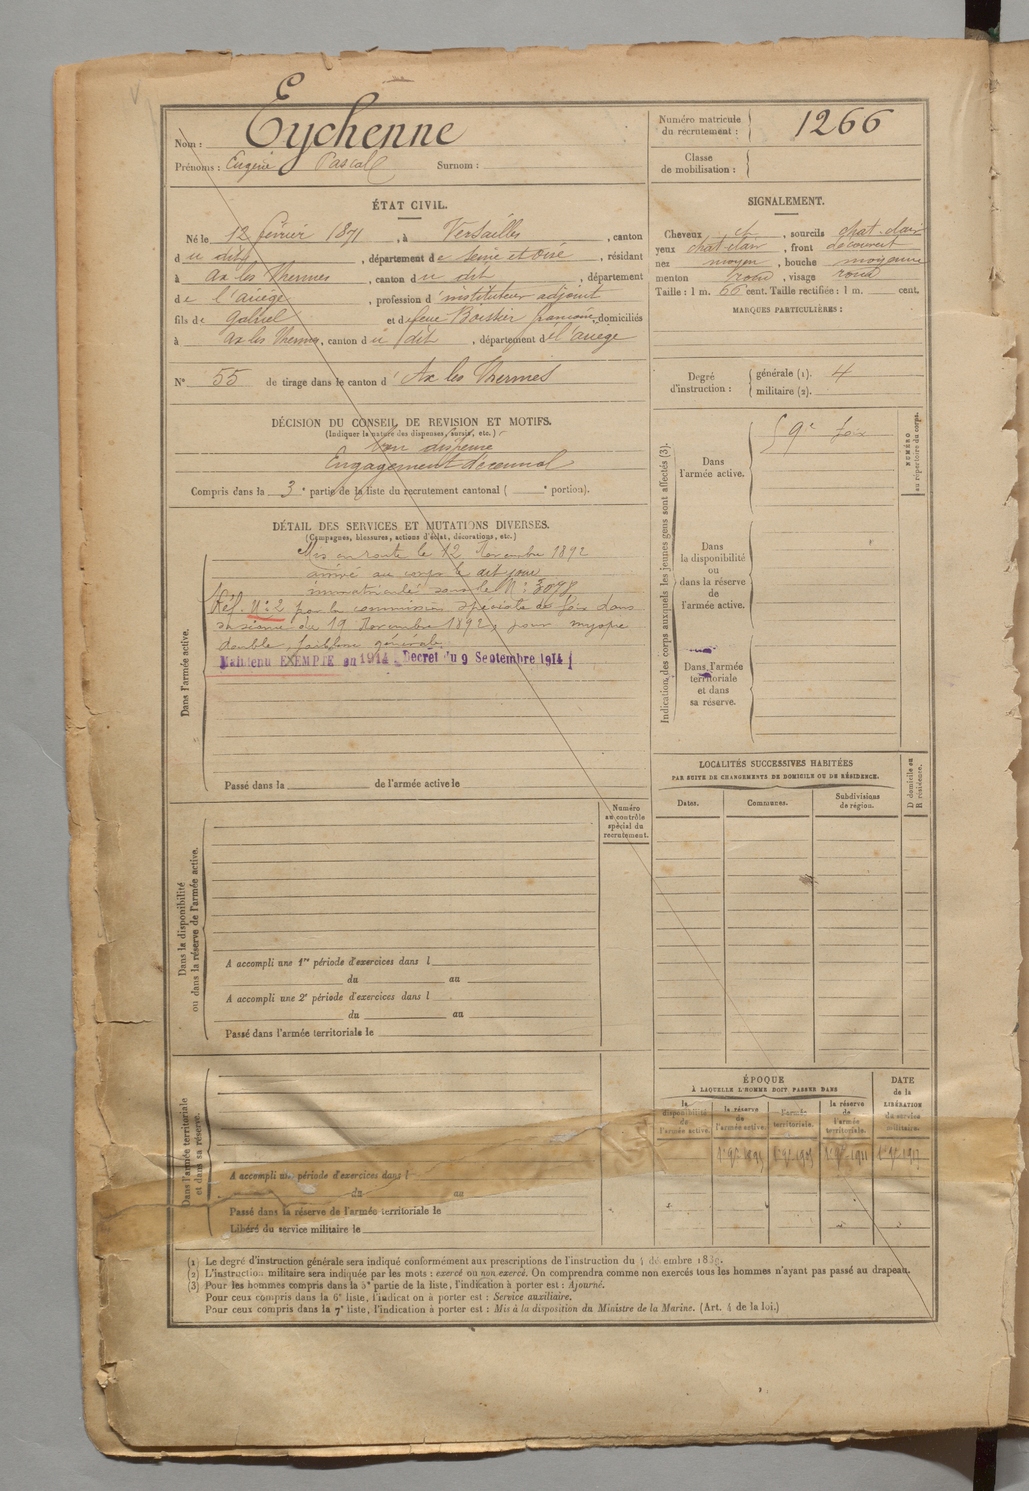 Nom : Eychenne
Prénoms : Eugène Pascal Surnom :
Numéro matricule du recrutement : 1266
Classe de mobilisation :
ÉTAT CIVIL.
Né le 12 février 1871, à Versailles, canton
du dit, département de Seine et Oise, résidant
à Ax les Thermes, canton du dit, département
de l'ariège, profession d'instituteur adjoint
fils de Gabriel et de feue françoise, domiciliés
à Ax les Thermes, canton du dit, département de l'ariège
N° 55 de tirage dans le canton d'Ax les Thermes
SIGNALEMENT.
Cheveux ch, sourcils chat. clair
yeux chat. clair, front découvert
nez moyen, bouche moyenne
menton rond, visage rond
Taille : 1 m. 66 cent. Taille rectifiée : 1 m. cent.
MARQUES PARTICULIÈRES :
Degré d'instruction : générale (1). 4
militaire (2).
DÉCISION DU CONSEIL DE REVISION ET MOTIFS.
(Indiquer la nature des dispenses, sursis, etc.)
dispensé
Engagement décennal
Compris dans la 3e partie de la liste du recrutement cantonal ( e portion).
DÉTAIL DES SERVICES ET MUTATIONS DIVERSES.
(Campagnes, blessures, actions d'éclat, décorations, etc.)
Dans l'armée active.
Mis en route le 12 Novembre 1892
arrivé au corps le dit jour
immatriculé sous le N° : 3078
Réf. N° 2 par la commission spéciale de foix dans
sa séance du 19 Novembre 1892, pour myopie
double, faiblesse générale.
Maintenu EXEMPTÉ en 1914 Décret du 9 Septembre 1914
Passé dans la de l'armée active le
Indication des corps auxquels les jeunes gens sont affectés (3).
NUMÉRO au répertoire du corps.
Dans l'armée active.
59e foix
Dans la disponibilité ou dans la réserve de l'armée active.
Dans l'armée territoriale et dans sa réserve.
LOCALITÉS SUCCESSIVES HABITÉES
PAR SUITE DE CHANGEMENTS DE DOMICILE OU DE RÉSIDENCE.
Dates. Communes. Subdivisions de région. D domicile ou R résidence.
Numéro au contrôle spécial du recrutement.
Dans la disponibilité ou dans la réserve de l'armée active.
A accompli une 1re période d'exercices dans l
du au
A accompli une 2e période d'exercices dans l
du au
Passé dans l'armée territoriale le
Dans l'armée territoriale et dans sa réserve.
A accompli une période d'exercices dans l
du au
Passé dans la réserve de l'armée territoriale le
Libéré du service militaire le
ÉPOQUE
À LAQUELLE L'HOMME DOIT PASSER DANS
la disponibilité de l'armée active. la réserve de l'armée active. l'armée territoriale. la réserve de l'armée territoriale.
DATE de la LIBÉRATION du service militaire.
(1) Le degré d'instruction générale sera indiqué conformément aux prescriptions de l'instruction du
(2) L'instruction militaire sera indiquée par les mots : exercé ou non exercé. On comprendra comme non exercés tous les hommes n'ayant pas passé au drapeau.
(3) Pour les hommes compris dans la 5e partie de la liste, l'indication à porter est : Ajourné.
Pour ceux compris dans la 6e liste, l'indication à porter est : Service auxiliaire.
Pour ceux compris dans la 7e liste, l'indication à porter est : Mis à la disposition du Ministre de la Marine. (Art. 4 de la loi.)